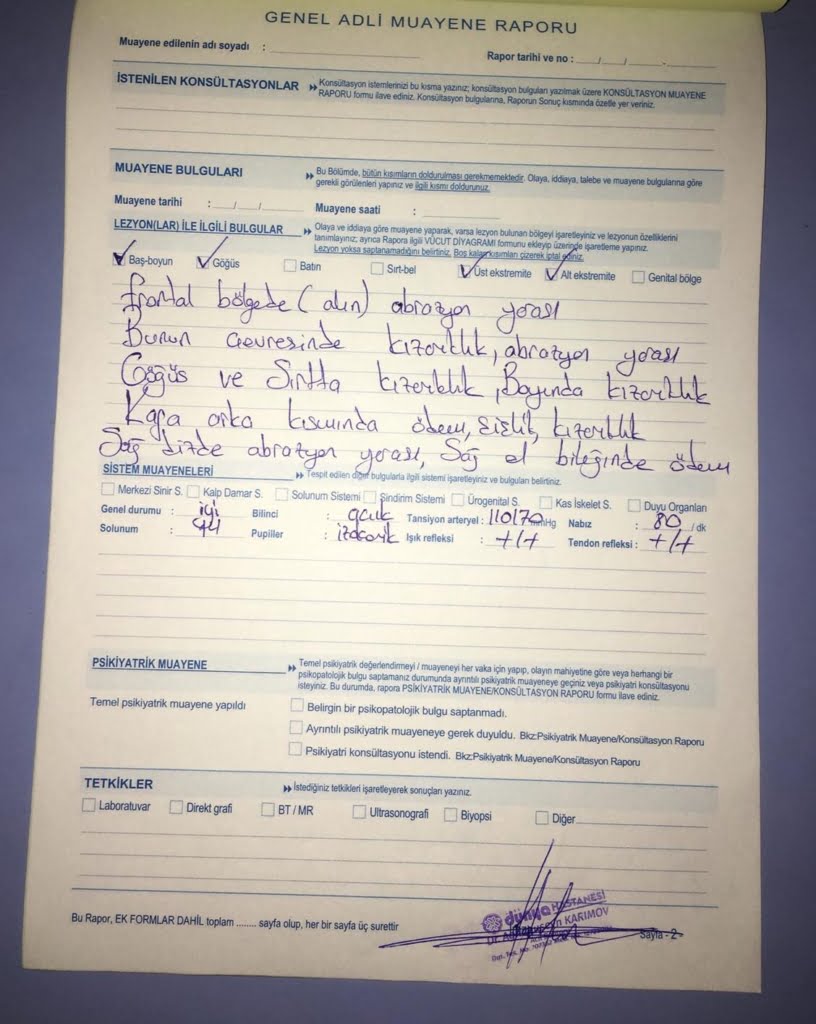 GENEL ADLİ MUAYENE RAPORU
Muayene edilenin adı soyadı :
Rapor tarihi ve no : __/__/__-__
İSTENİLEN KONSÜLTASYONLAR
Konsültasyon istemlerinizi bu kısma yazınız; konsültasyon bulguları yazılmak üzere KONSÜLTASYON MUAYENE
RAPORU formu ilave ediniz. Konsültasyon bulgularına, Raporun Sonuç kısmında özetle yer veriniz.
MUAYENE BULGULARI
Bu Bölümde, bütün kısımların doldurulması gerekmemektedir. Olaya, iddiaya, talebe ve muayene bulgularına göre
gerekli görülenleri yapınız ve ilgili kısmı doldurunuz.
Muayene tarihi : __/__/__ Muayene saati :
LEZYON(LAR) İLE İLGİLİ BULGULAR
Olaya ve iddiaya göre muayene yaparak, varsa lezyon bulunan bölgeyi işaretleyiniz ve lezyonun özelliklerini
tanımlayınız; ayrıca Rapora ilgili VÜCUT DİYAGRAMI formunu ekleyip üzerinde işaretleme yapınız.
Lezyon yoksa saptanamadığını belirtiniz. Boş kalan kısımları çizerek iptal ediniz.
Baş-boyun Göğüs Batın Sırt-bel Üst ekstremite Alt ekstremite Genital bölge
frontal bölgede (alın) abrazyon yarası
Burun çevresinde kızarıklık, abrazyon yarası
Göğüs ve Sırtta kızarıklık, Boyunda kızarıklık
Kafa arka kısmında ödem, şişlik, kızarıklık
Sağ dizde abrazyon yarası, Sağ el bileğinde ödem
SİSTEM MUAYENELERİ
Tespit edilen diğer bulgularla ilgili sistemi işaretleyiniz ve bulguları belirtiniz.
Merkezi Sinir S. Kalp Damar S. Solunum Sistemi Sindirim Sistemi Ürogenital S. Kas İskelet S. Duyu Organları
Genel durumu : iyi Bilinci : açık Tansiyon arteryel : 110/70 mmHg Nabız : 80 / dk
Solunum : Pupiller : izokorik Işık refleksi : +/+ Tendon refleksi : +/+
PSİKİYATRİK MUAYENE
Temel psikiyatrik değerlendirmeyi / muayeneyi her vaka için yapıp, olayın mahiyetine göre veya herhangi bir
psikopatolojik bulgu saptamanız durumunda ayrıntılı psikiyatrik muayeneye geçiniz veya psikiyatri konsültasyonu
isteyiniz. Bu durumda, rapora PSİKİYATRİK MUAYENE/KONSÜLTASYON RAPORU formu ilave ediniz.
Temel psikiyatrik muayene yapıldı
Belirgin bir psikopatolojik bulgu saptanmadı.
Ayrıntılı psikiyatrik muayeneye gerek duyuldu. Bkz:Psikiyatrik Muayene/Konsültasyon Raporu
Psikiyatri konsültasyonu istendi. Bkz:Psikiyatrik Muayene/Konsültasyon Raporu
TETKİKLER
İstediğiniz tetkikleri işaretleyerek sonuçları yazınız.
Laboratuvar Direkt grafi BT / MR Ultrasonografi Biyopsi Diğer
Bu Rapor, EK FORMLAR DAHİL toplam ........ sayfa olup, her bir sayfa üç surettir
dünya HASTANESİ
KARIMOV
Sayfa - 2